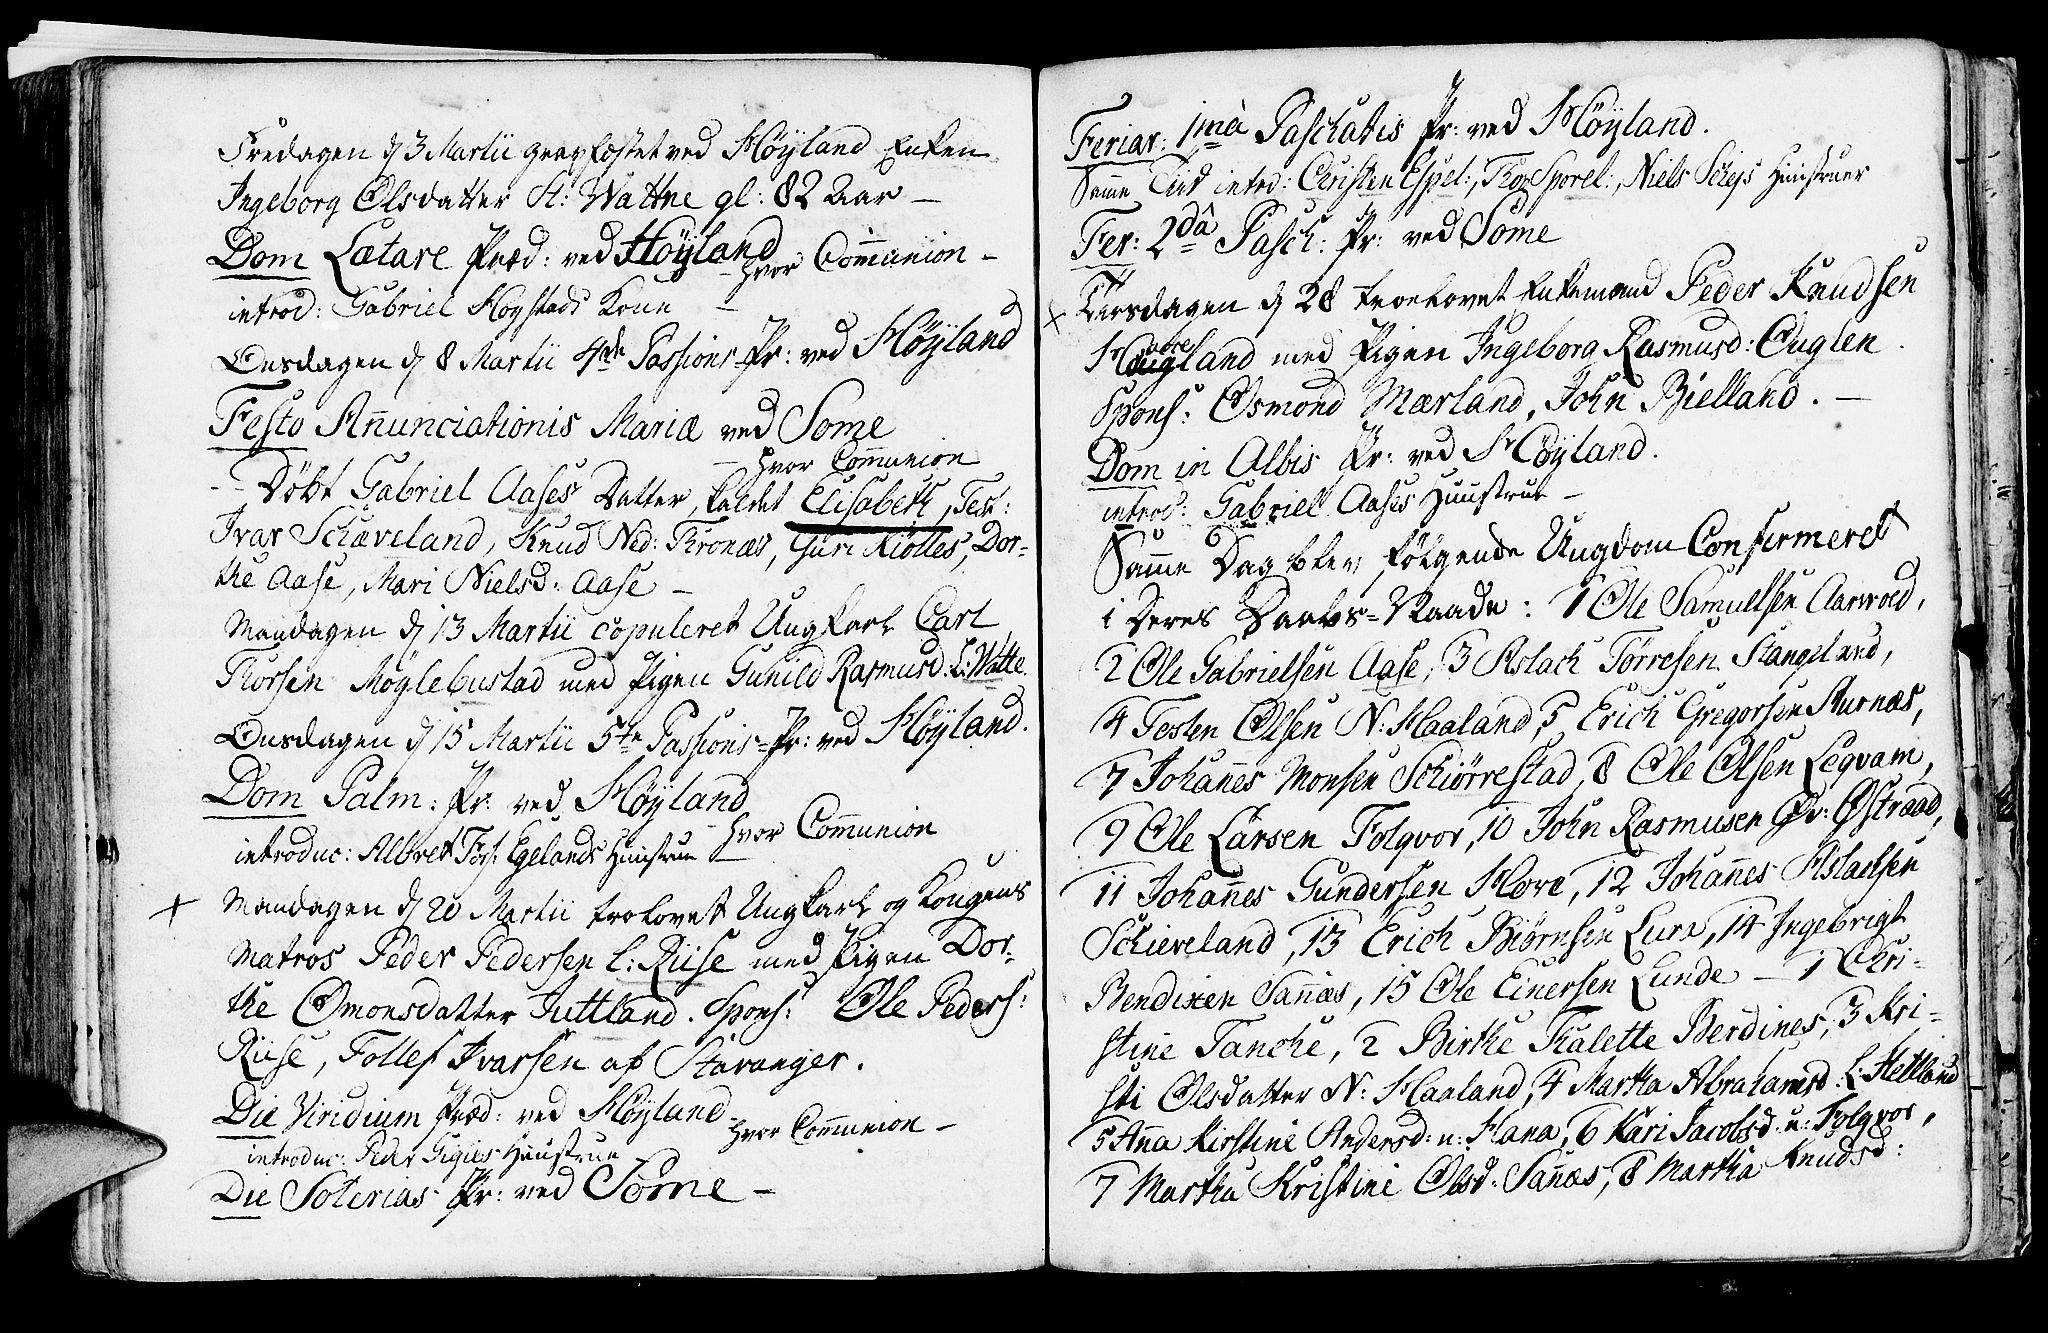 Fredagen d 3 Martii gravfæstet ved Höÿland Enken
Ingeborg Olsdatter St: Wattne gl: 82 Aar —
Dom Lætare Præd: ved Höÿland
— hvor Com̄union —
introd: Gabriel Hogstads Kone —
Onsdagen d 8 Martii 4de Passions-Pr: ved Höÿland
Festo An̄unciationis Mariæ ved Some
— hvor Com̄union
— Döbt Gabriel Aases Datter, kaldet Elisabeth, Test:
Ivar Schæveland, Knud Ned: Thronæs, Guri Kiölles, Dor-
the Aase, Mari Nielsd: Aase —
Mandagen d 13 Martii copuleret Ungkarl Carl
Thorsen Möglebustad med Pigen Gunild Rasmusd: L: Watte.
Onsdagen d 15 Martii 5te Passions-Pr: ved Höÿland.
Dom Palm: Pr: ved Höÿland
— hvor Com̄union
introduc: Albret Egelands Huustrue
+ Mandagen d 20 Martii trolovet Ungkarl og Kongens
Matros Peder Pedersen L: Riise med Pigen Dor-
the Omonsdatter Juttland. Spons: Ole Peders:
Riise, Tollef Ivarsen af Stavanger.
Die Viridium Præd: ved Höÿland
— hvor Com̄union —
introduc: Peder Huustrue
Die Soterias Pr: ved Some —
Feriar: 1mâ Paschatis Pr: ved Höÿland.
Sam̄e Tid introd: Christen Espel:, Thor Sporel:, Niels Huustruer
Fer: 2dâ Pasch: Pr: ved Some
+ Tirsdagen d 28 troelovet Enkemand Peder Knudsen
Hougland med Pigen Ingeborg Rasmusd: Ouglen.
Spons: Osmond Mærland, John Bielland. —
Dom in Albis Pr: ved Höÿland.
introd: Gabriel Aases Huustrue —
Sam̄e Dag blev fölgende Ungdom Confirmeret
i Deres Daabs-Naade: 1 Ole Samuelsen Aarwold,
2 Ole Gabrielsen Aase, 3 Aslach Törresen Stangeland,
4 Testen Olsen N: Haaland, 5 Erich Gregorsen Aurnæs,
7 Johan̄es Monsen Schiörrestad, 8 Ole Olsen Leqvam,
9 Ole Larsen Folqvor, 10 John Rasmusen Öv: Östraad,
11 Johan̄es Gundersen Hove, 12 Johan̄es Aslachsen
Schieveland, 13 Erich Biörnsen Lura, 14 Ingebrigt
Bendixen San̄æs, 15 Ole Einersen Lunde — 1 Chri-
stine Tanche, 2 Birthe Thalette Berdines, 3 Kri-
sti Olsdatter N: Haaland, 4 Martha Abrahamsd: L: Hetland
5 An̄a Kirstine Andersd: n: Hana, 6 Kari Jacobsd: n: Folqvor,
7 Martha Kristine Olsd: San̄æs, 8 Martha Knudsd: